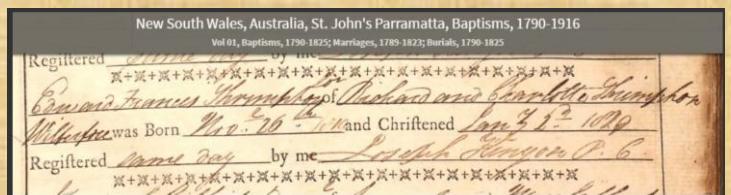 New South Wales, Australia, St. John's Parramatta, Baptisms, 1790-1916
Vol 01, Baptisms, 1790-1825; Marriages, 1789-1823; Burials, 1790-1825
Regiſtered same day by me
Edward Frances Thrimphon of Richard and Charlotte Thrimphon
Wilberforce was Born Nov.r 26th and Chriſtened Jan.y 2d
Regiſtered same day by me Joseph Kenyon P. C.